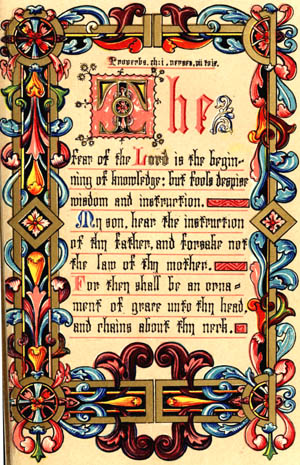 Proverbs. ch: i. verses. vii to ix.
The
fear of the Lord is the begin-
ning of knowledge: but fools despise
wisdom and instruction.
My son, hear the instruction
of thy father, and forsake not
the law of thy mother.
For they shall be an orna-
ment of grace unto thy head,
and chains about thy neck.